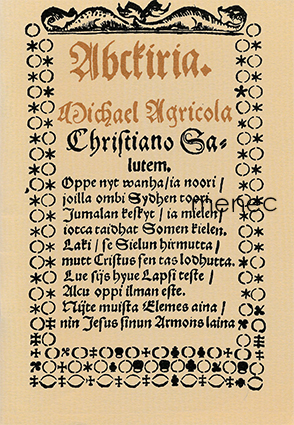 Abckiria.
Michael Agricola
Christiano Sa-
lutem.
Oppe nyt wanha/ia noori/
joilla ombi Sydhen toori
Jumalan keskyt/ia mielen/
iotca taidhat Somen kielen.
Laki/se Sielun hirmutta/
mutt Cristus sen tas lodhutta.
Lue sijs hyue Lapsi teste/
Alcu oppi ilman este.
Nijte muista Elemes aina/
nin Jesus sinun Armons laina
menec